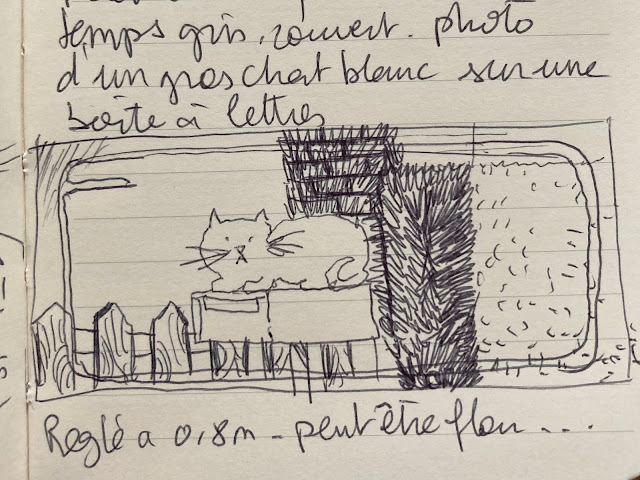 temps gris, couvert. photo
d'un gros chat blanc sur une
boîte à lettres
Reglé a 0,8m - peut être flou ...